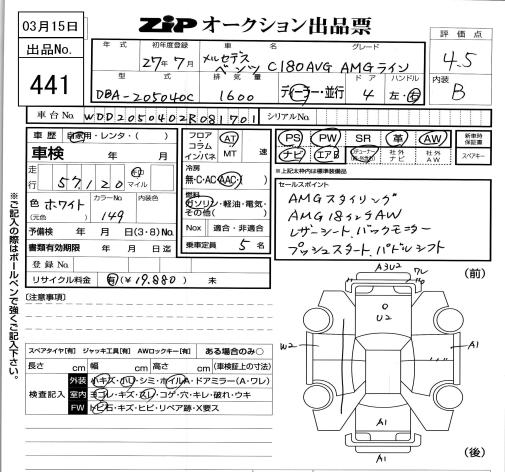 03月15日
出品No.
441
ZIP オークション出品票
評価点
4.5
内装
B
年式
初年度登録
27年7月
車名
グレード
メルセデス
ベンツ C180AVG AMGライン
型式
DBA-205040C
排気量
1600
ディーラー・並行
ドア
4
ハンドル
左・右
車台No. WDD2050402R081701
シリアルNo.
車歴 自家用・レンタ・( )
車検 年 月
走行 57,120 km マイル
色 ホワイト
(元色)
カラーNo.
149
内装色
予備検 年 月 日(3・8)No.
書類有効期限 年 月 日迄
登録No.
リサイクル料金 有(¥19,880) 未
フロア
コラム
インパネ
AT
MT
速
冷房
無・C・AC・AAC
燃料
ガソリン・軽油・電気・
その他( )
Nox 適合・非適合
乗車定員 5 名
PS PW SR 革 AW
ナビ エアB
社外
ナビ
社外
AW
新車時
保証書
スペアキー
※上記太枠内は標準装備品
セールスポイント
AMGスタイリング
AMG18インチAW
レザーシート バックモニター
プッシュスタート、パドルシフト
※ご記入の際はボールペンで強くご記入下さい。
[注意事項]
スペアタイヤ[有] ジャッキ工具[有] AWロックキー[有] ある場合のみ○
長さ cm 幅 cm 高さ cm (車検証上の寸法)
検査記入
外装 小キズ・凹・シミ・ホイルA・ドアミラー(A・ワレ)
室内 ヨゴレ・キズ・スレ・コゲ・穴・キレ・破れ・ウキ
FW トビ石・キズ・ヒビ・リペア跡・X要ス
(前)
A3U2
U2
W2
A1
A1
A1
(後)